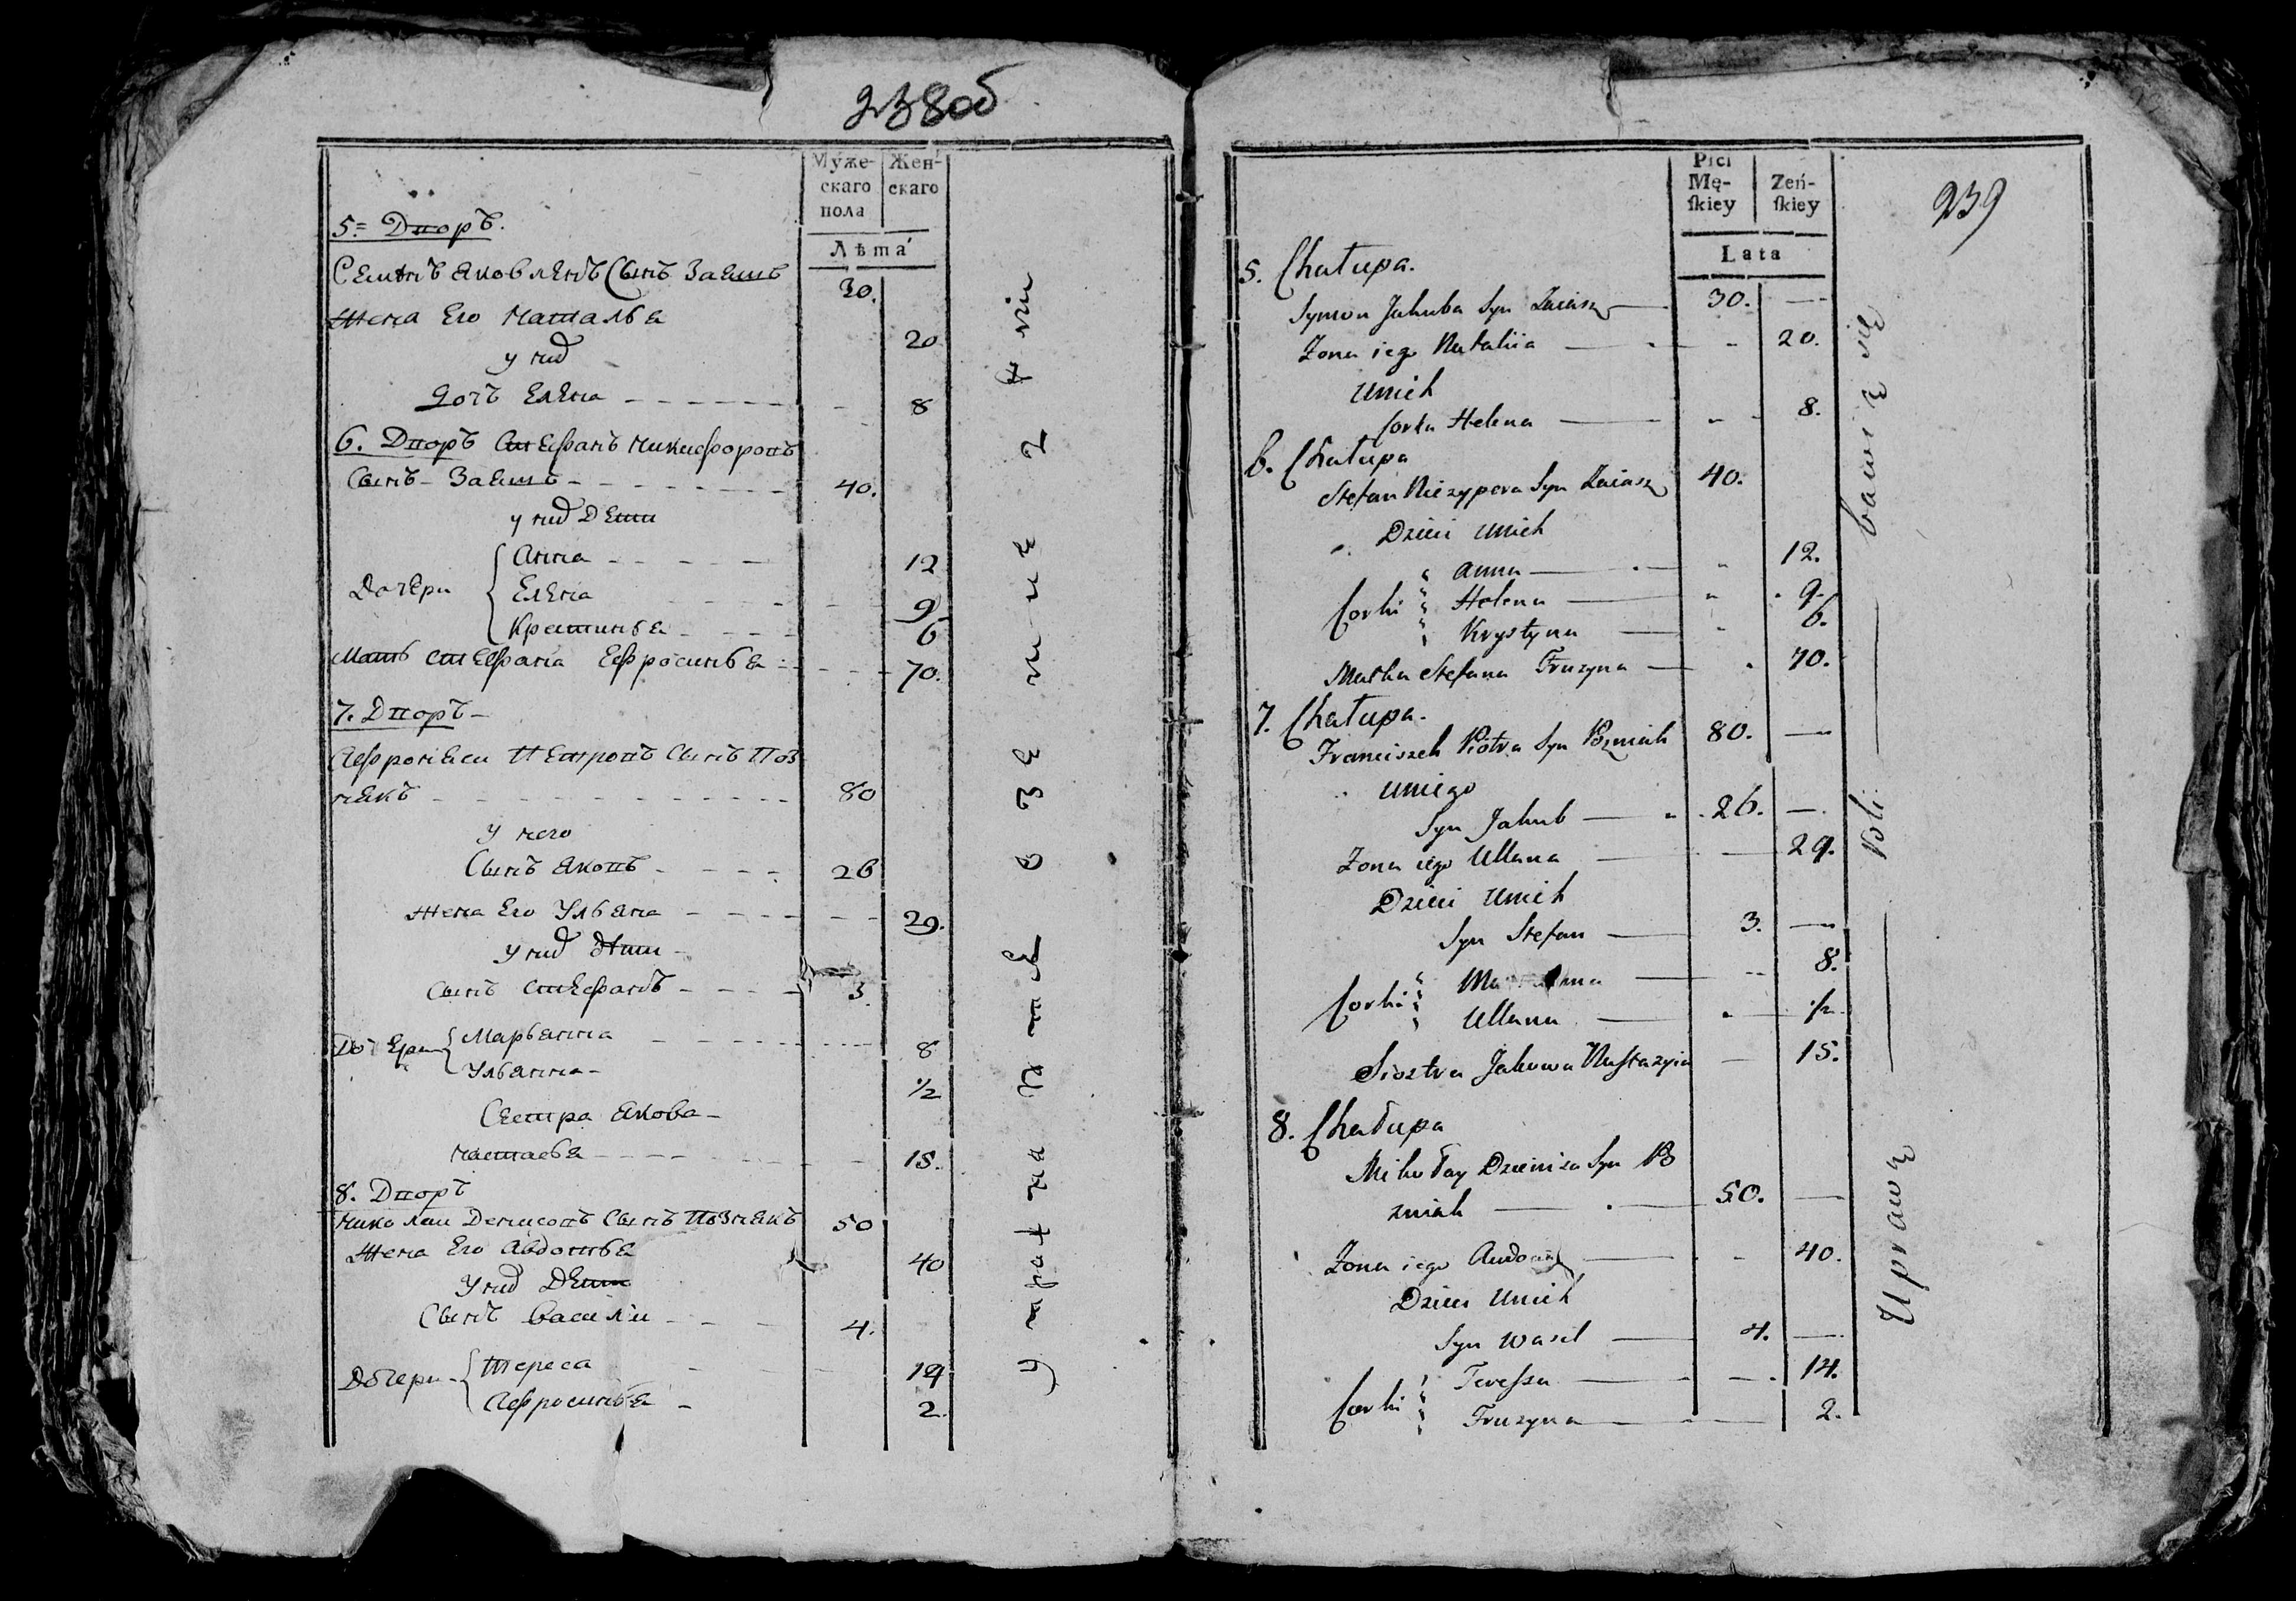 238об
Муже-
скаго
пола
Жен-
скаго
Лѣта
5= Дворъ.
Семенъ Яковлевъ Сынъ Заяшъ 30.
Жена Его Наталья 20
у них
Дочъ Елена 8
6. Дворъ Стефанъ Никифоровъ
Сынъ Заяшъ 40.
у них Дети
Дочери Анна 12
Елена 9
Кристинья 6
Мать Стефана Ефросинья 70.
7. Дворъ
Афронеси Петровъ Сынъ Поз
някъ 80
У него
Сынъ Яковъ 26
Жена Его Ульяна 29.
у них дети
Сынъ Стефанъ 3.
Дочери Марьянна 8
Ульянна 1/2
Сестра Якова
Настасья 15.
8. Дворъ
Николаи Денисовъ Сынъ Познякъ 50
Жена Его Авдотья 40
У них Дети
Сынъ Васили 4.
Дочери Тереса 14
Афросинья 2.
239
Płci
Mę-
ſkiey
Zeń-
ſkiey
Lata
5. Chałupa.
Symon Jakuba Syn Zaiasz 30.
Zona iego Natalia 20.
Unich
Corka Helena 8.
6. Chałupa
Stefan Niczypora Syn Zaiasz 40.
Dzieci Unich
Corki Anna 12.
Helena 9.
Krystyna 6.
Matka Stefana Fruzyna 70.
7. Chałupa.
Franciszek Piotra Syn Pozniak 80.
Uniego
Syn Jakub 26.
Zona iego Ullana 29.
Dzieci Unich
Syn Stefan 3.
Corki 8.
Ullana 1/2
Siostra Jakowa Nastazyia 15.
8. Chałupa
Mikołay Dzienisa Syn Po
zniak 50.
Zona iego 40.
Dzieci Unich
Syn Wasil 4.
Corki Teressa 14.
Fruzyna 2.
Uprawą Roli bawią się